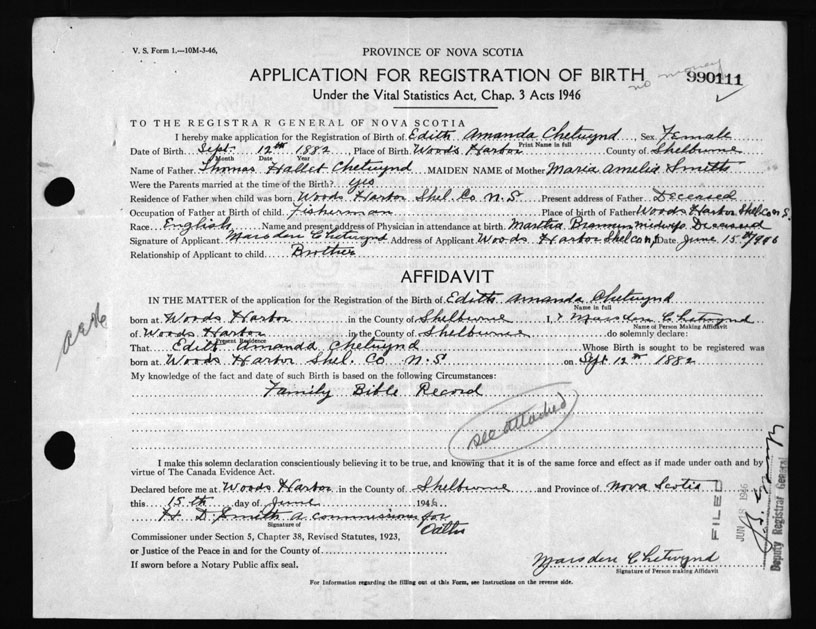 V. S. Form 1.—10M-3-46,
PROVINCE OF NOVA SCOTIA
APPLICATION FOR REGISTRATION OF BIRTH
no money
990111
Under the Vital Statistics Act, Chap. 3 Acts 1946
TO THE REGISTRAR GENERAL OF NOVA SCOTIA
I hereby make application for the Registration of Birth of Edith Amanda Chetwynd Sex Female
Print Name in full
Date of Birth Sept. 12th 1882, Place of Birth Woods Harbor County of Shelburne
Month Date Year
Name of Father Thomas Hallet Chetwynd MAIDEN NAME of Mother Maria Amelia Smith
Were the Parents married at the time of the Birth? yes
Residence of Father when child was born Woods Harbor Shel. Co N.S Present address of Father Deceased
Occupation of Father at Birth of child Fisherman Place of birth of Father Woods Harbor Shel co N.S.
Race English Name and present address of Physician in attendance at birth Martha midwife Deceased
Signature of Applicant Marsden Chetwynd Address of Applicant Woods Harbor Shel co NS Date June 15th
Relationship of Applicant to child Brother
AFFIDAVIT
IN THE MATTER of the application for the Registration of the Birth of Edith Amanda Chetwynd
Name in full
born at Woods Harbor in the County of Shelburne I, Marsden Chetwynd
Name of Person Making Affidavit
of Woods Harbor in the County of Shelburne do solemnly declare:
Present Residence
That Edith Amanda Chetwynd Whose Birth is sought to be registered was
born at Woods Harbor Shel. Co N.S on Sept 12th 1882
My knowledge of the fact and date of such Birth is based on the following Circumstances:
Family Bible Record
see attached
I make this solemn declaration conscientiously believing it to be true, and knowing that it is of the same force and effect as if made under oath and by
virtue of The Canada Evidence Act.
Declared before me at Woods Harbor in the County of Shelburne and Province of Nova Scotia
this 15th day of June 194
H D Smith a commissioner for
Oaths
Signature of
Commissioner under Section 5, Chapter 38, Revised Statutes, 1923,
or Justice of the Peace in and for the County of
If sworn before a Notary Public affix seal.
Marsden Chetwynd
Signature of Person making Affidavit
For Information regarding the filling out of this Form, see Instructions on the reverse side.
FILED
JUN 18 1946
Deputy Registrar General